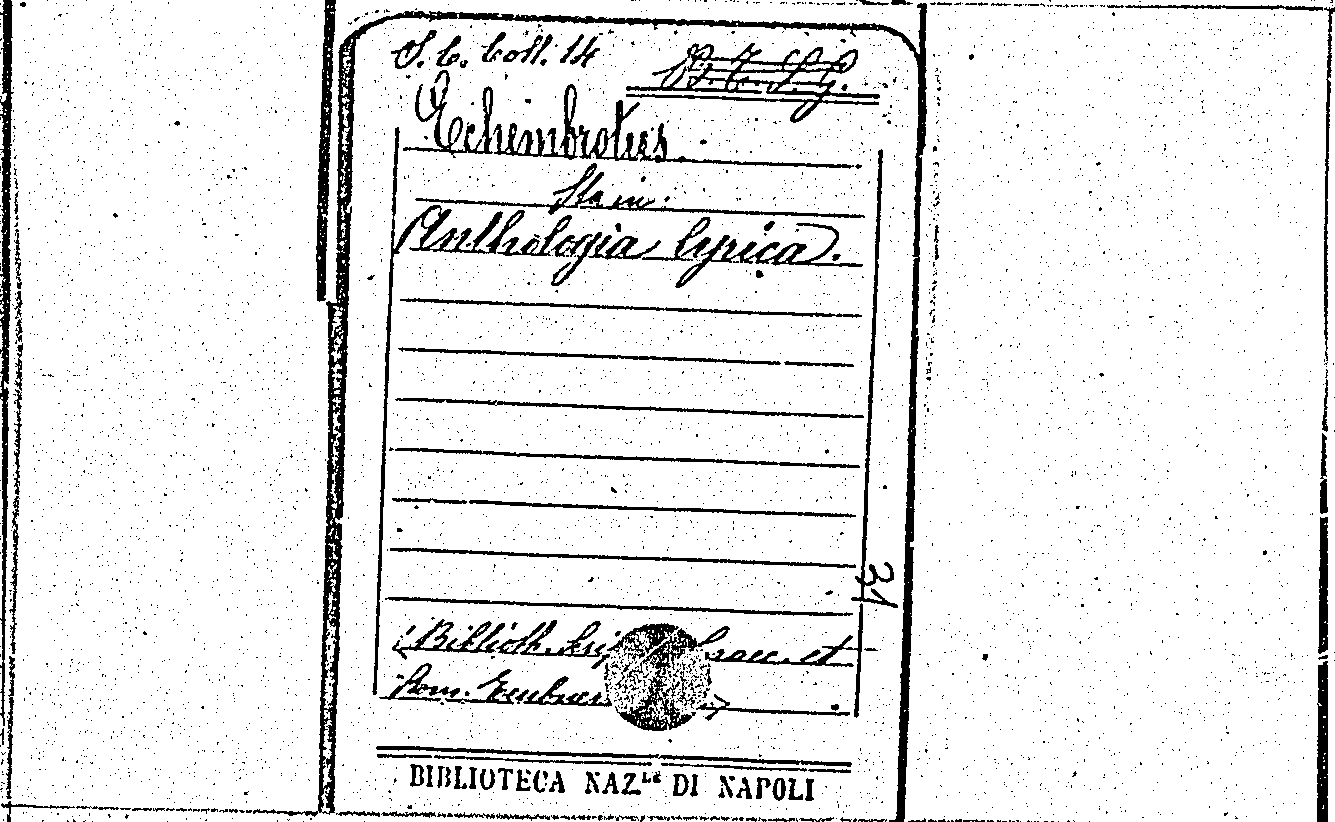 S. C. Coll. 14
B. T. S. G.
Echembrotus.
Sta in:
Anthologia lyrica.
31
(Biblioth. Scrip. Graec. et
Rom. Teubner
BIBLIOTECA NAZ.LE DI NAPOLI